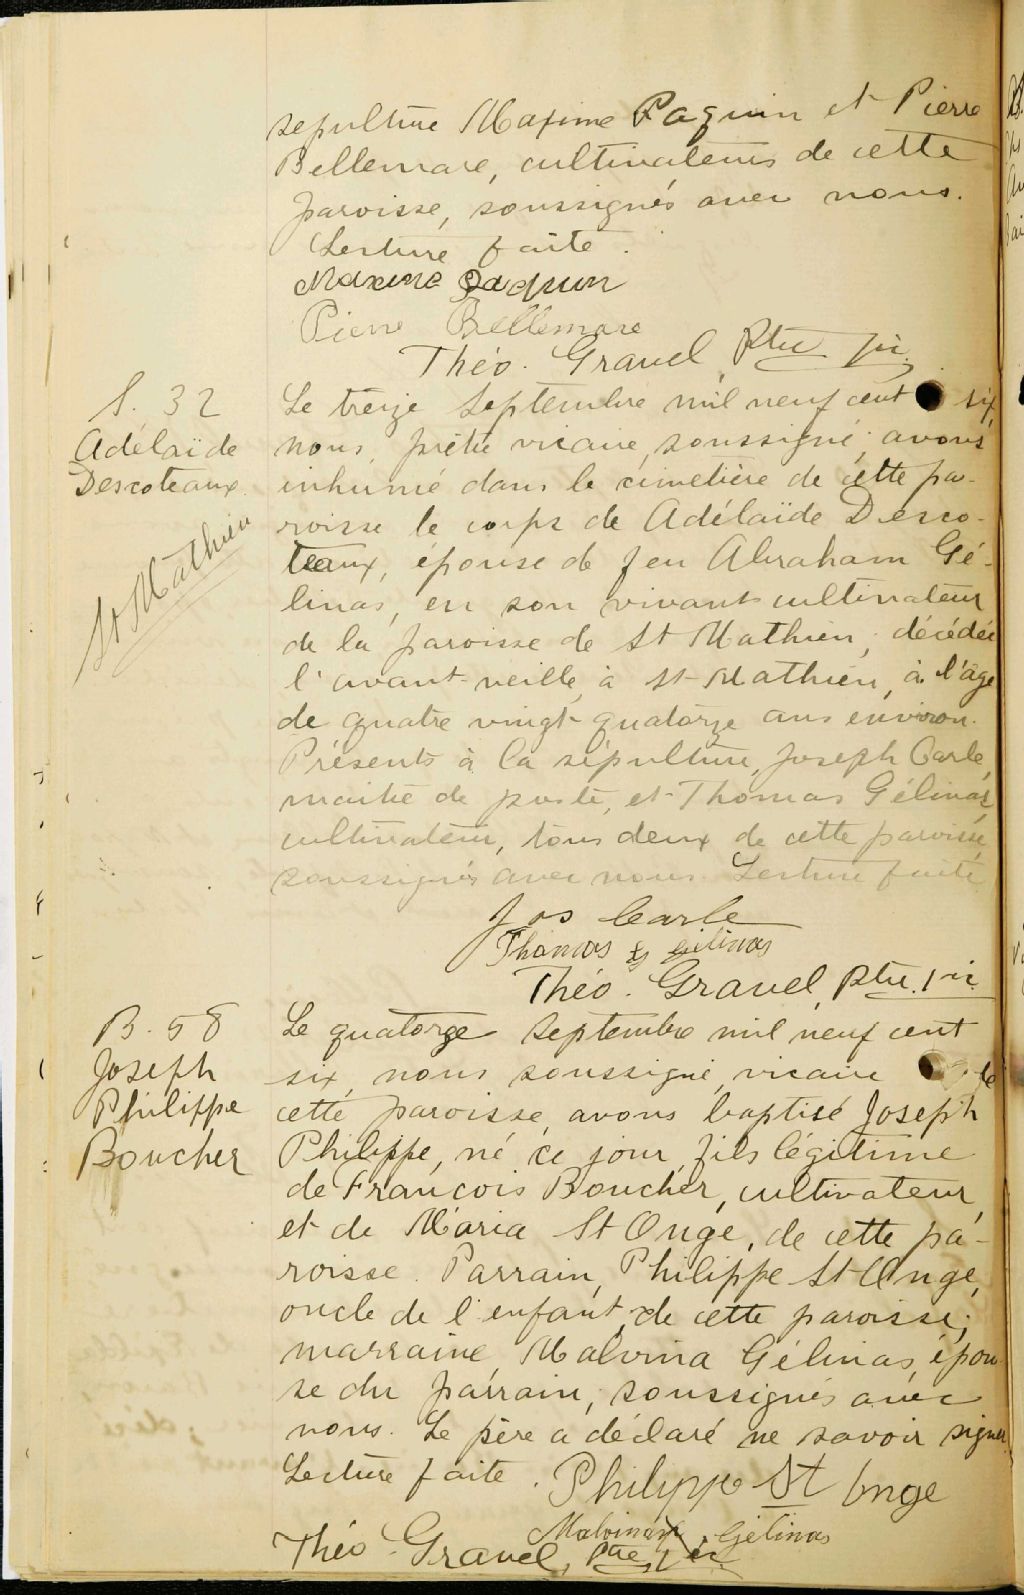 sepulture Maxime Paquin et Pierre
Bellemare, cultivateurs de cette
paroisse, soussignés avec nous.
Lecture faite.
Maxime Paquin
Pierre Bellemare
Théo. Gravel, Ptre vic.
S. 32
Adélaïde
Descoteaux
St Mathieu
Le treize Septembre mil neuf cent six,
nous, prêtre vicaire, soussigné, avons
inhumé dans le cimetière de cette pa-
roisse le corps de Adélaïde Desco-
teaux, épouse de feu Abraham Gé-
linas, en son vivant cultivateur
de la paroisse de St Mathieu, décédée
l'avant-veille, à St-Mathieu, à l'âge
de quatre vingt-quatorze ans environ.
Présents à la sépulture, Joseph Carle,
maître de poste, et Thomas Gélinas,
cultivateur, tous deux de cette paroisse,
soussignés avec nous. Lecture faite
Jos Carle
Thomas Gélinas
Théo. Gravel, Ptre. vic.
B. 58
Joseph
Philippe
Boucher
Le quatorze septembre mil neuf cent
six, nous soussigné, vicaire de
cette paroisse, avons baptisé Joseph
Philippe, né ce jour, fils légitime
de François Boucher, cultivateur,
et de Maria St Onge, de cette pa-
roisse. Parrain, Philippe St-Onge,
oncle de l'enfant, de cette paroisse;
marraine, Malvina Gélinas, épou-
se du parrain, soussignés avec
nous. Le père a déclaré ne savoir signer.
Lecture faite. Philippe St Onge
Malvina Gélinas
Théo. Gravel, Ptre, vic